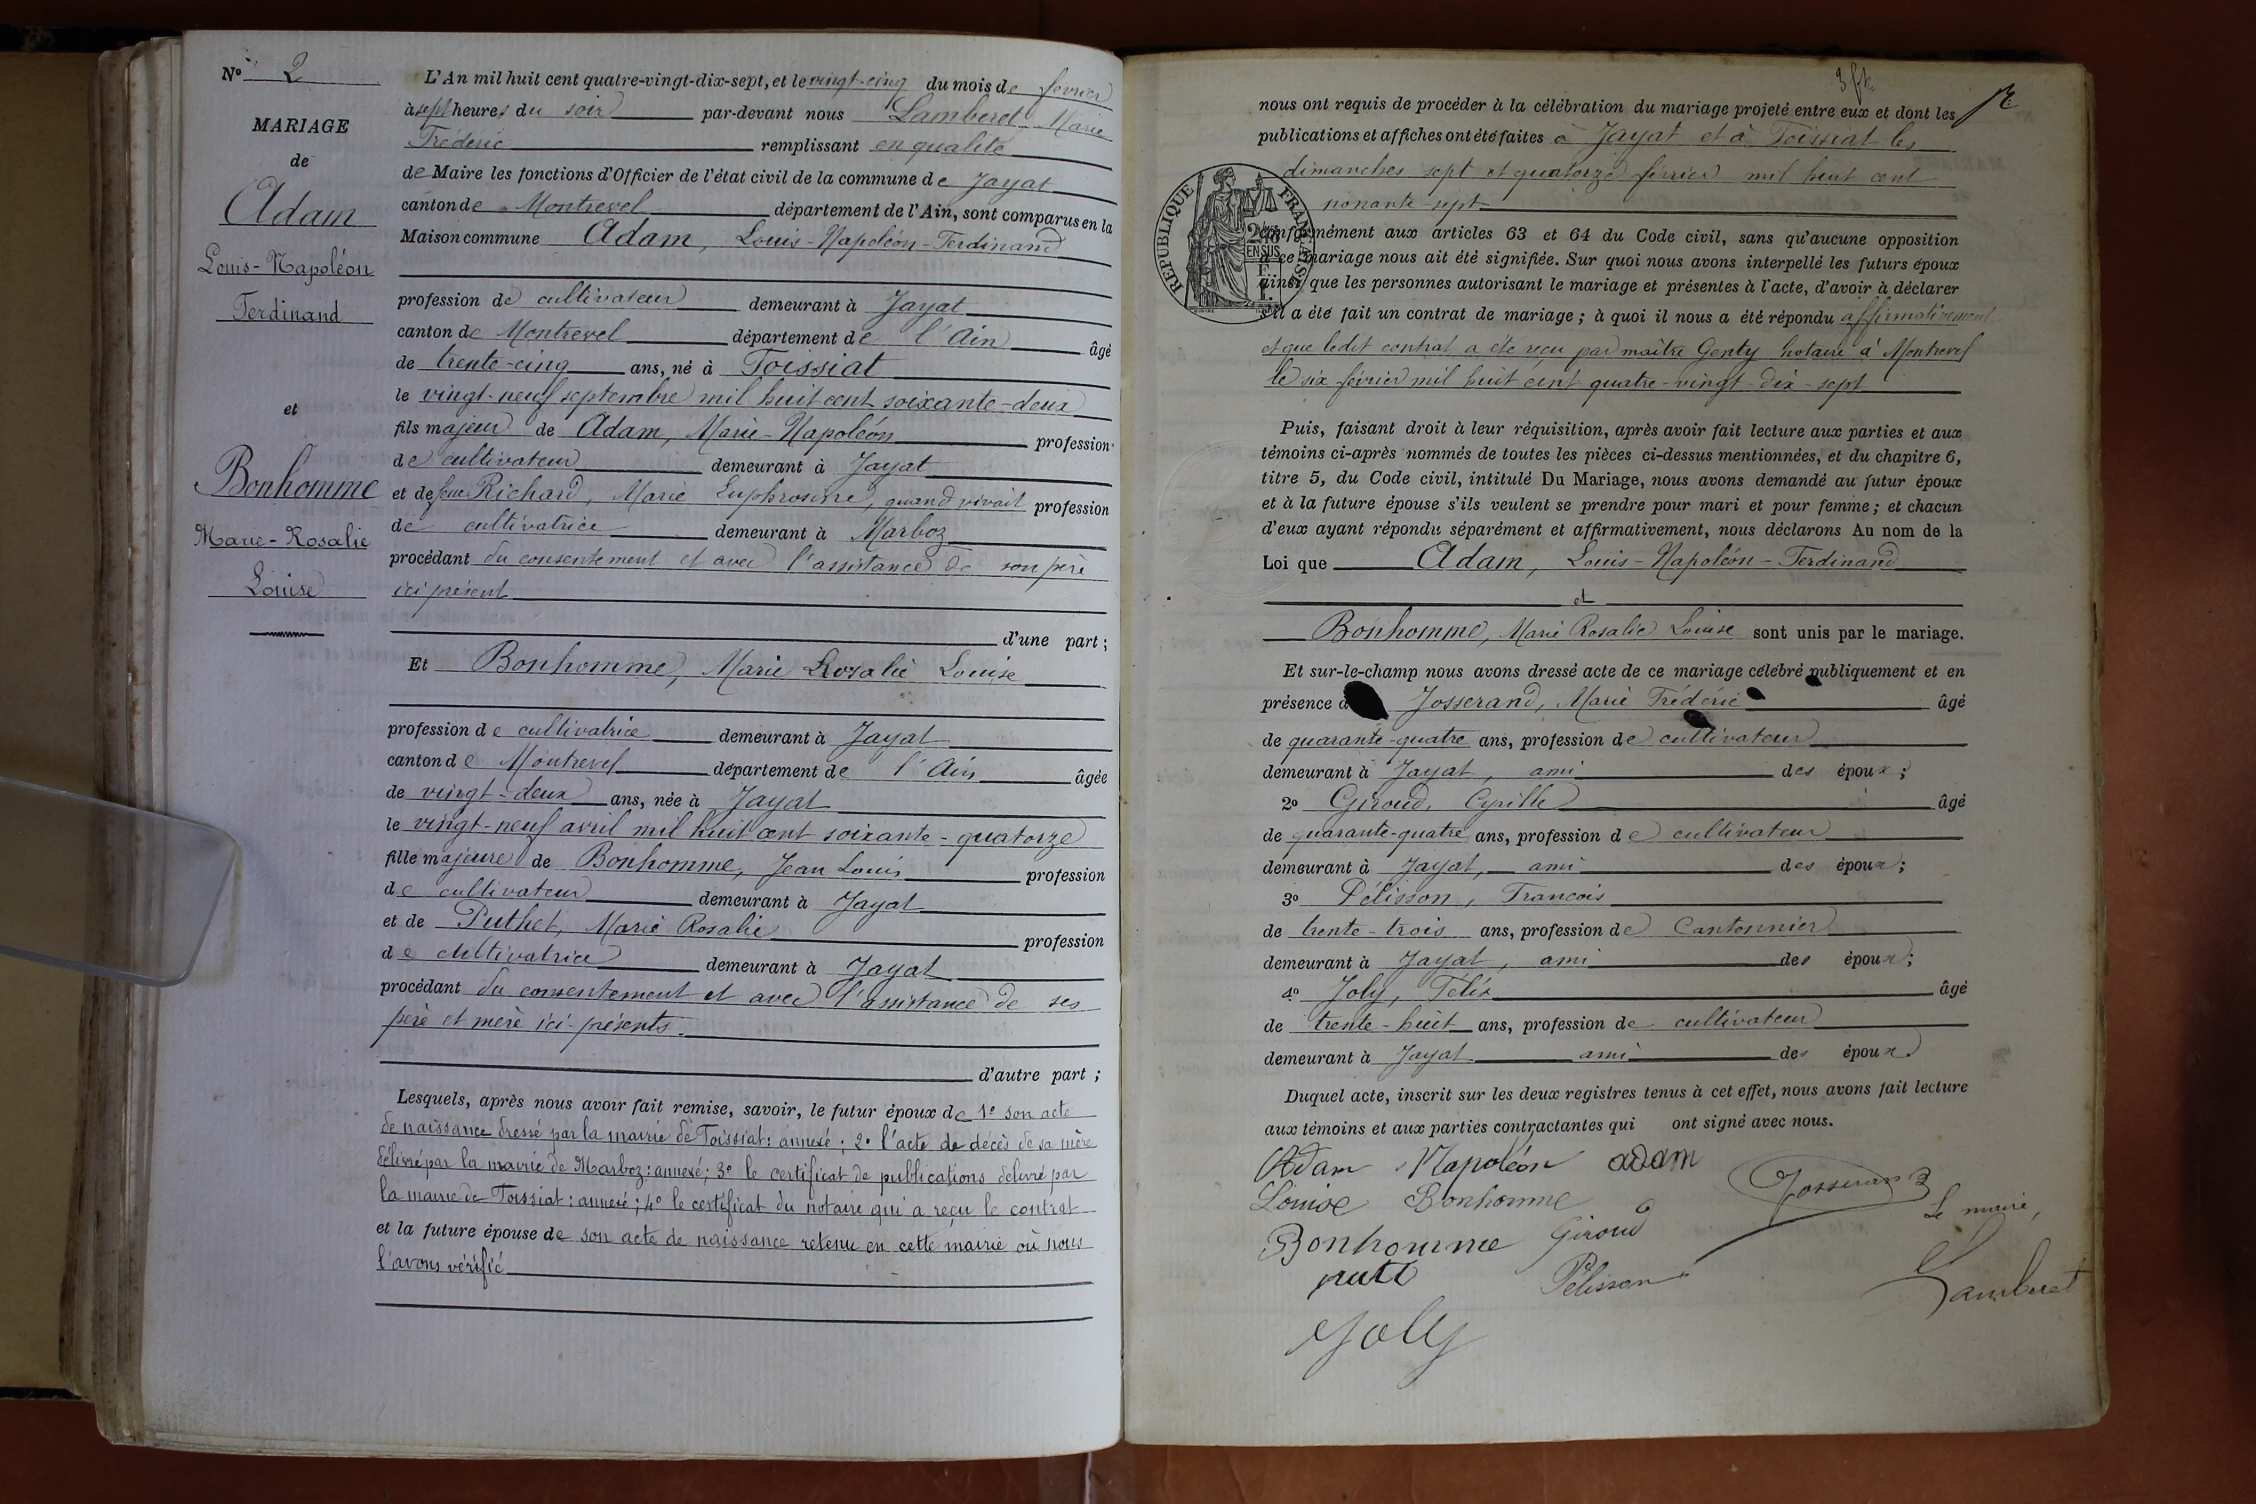 No 2
MARIAGE
de
Adam
Louis-Napoléon
Ferdinand
et
Bonhomme
Marie-Rosalie
Louise
L'An mil huit cent quatre-vingt-dix-sept, et le vingt-cinq du mois de février
à sept heures du soir par-devant nous Lamberet Marie
Frédéric remplissant en qualité
de Maire les fonctions d'Officier de l'état civil de la commune de Jayat
canton de Montrevel département de l'Ain, sont comparus en la
Maison commune Adam, Louis-Napoléon-Ferdinand
profession de cultivateur demeurant à Jayat
canton de Montrevel département de l'Ain âgé
de trente-cinq ans, né à Foissiat
le vingt-neuf septembre mil huit cent soixante-deux
fils majeur de Adam, Marie-Napoléon profession
de cultivateur demeurant à Jayat
et de feue Richard, Marie Euphrosine, quand vivait profession
de cultivatrice demeurant à Marboz
procédant du consentement et avec l'assistance de son père
ici présent
d'une part ;
Et Bonhomme, Marie Rosalie Louise
profession de cultivatrice demeurant à Jayat
canton de Montrevel département de l'Ain âgée
de vingt-deux ans, née à Jayat
le vingt-neuf avril mil huit cent soixante-quatorze
fille majeure de Bonhomme, Jean Louis profession
de cultivateur demeurant à Jayat
et de Puthet, Marie Rosalie profession
de cultivatrice demeurant à Jayat
procédant du consentement et avec l'assistance de ses
père et mère ici présents.
d'autre part ;
Lesquels, après nous avoir fait remise, savoir, le futur époux de 1° son acte
de naissance dressé par la mairie de Foissiat : annexé ; 2° l'acte de décès de sa mère
délivré par la mairie de Marboz : annexé ; 3° le certificat de publications délivré par
la mairie de Foissiat : annexé ; 4° le certificat du notaire qui a reçu le contrat
et la future épouse de son acte de naissance retenu en cette mairie où nous
l'avons vérifié
nous ont requis de procéder à la célébration du mariage projeté entre eux et dont les
publications et affiches ont été faites à Jayat et à Foissiat les
dimanches sept et quatorze février mil huit cent
nonante-sept
RÉPUBLIQUE FRANÇAISE
EN SUS
conformément aux articles 63 et 64 du Code civil, sans qu'aucune opposition
à ce mariage nous ait été signifiée. Sur quoi nous avons interpellé les futurs époux
ainsi que les personnes autorisant le mariage et présentes à l'acte, d'avoir à déclarer
s'il a été fait un contrat de mariage ; à quoi il nous a été répondu affirmativement
et que ledit contrat a été reçu par maître Genty notaire à Montrevel
le six février mil huit cent quatre-vingt-dix-sept
Puis, faisant droit à leur réquisition, après avoir fait lecture aux parties et aux
témoins ci-après nommés de toutes les pièces ci-dessus mentionnées, et du chapitre 6,
titre 5, du Code civil, intitulé Du Mariage, nous avons demandé au futur époux
et à la future épouse s'ils veulent se prendre pour mari et pour femme ; et chacun
d'eux ayant répondu séparément et affirmativement, nous déclarons Au nom de la
Loi que Adam, Louis-Napoléon-Ferdinand
et
Bonhomme, Marie Rosalie Louise sont unis par le mariage.
Et sur-le-champ nous avons dressé acte de ce mariage célébré publiquement et en
présence d Josserand, Marie Frédéric âgé
de quarante-quatre ans, profession de cultivateur
demeurant à Jayat, ami des époux ;
2o Giroud, Cyrille âgé
de quarante-quatre ans, profession de cultivateur
demeurant à Jayat, ami des époux ;
3o Pélisson, Francois
de trente-trois ans, profession de Cantonnier
demeurant à Jayat, ami des époux ;
4o Joly, Félix âgé
de trente-huit ans, profession de cultivateur
demeurant à Jayat ami des époux
Duquel acte, inscrit sur les deux registres tenus à cet effet, nous avons fait lecture
aux témoins et aux parties contractantes qui ont signé avec nous.
Adam Napoléon adam
Louise Bonhomme Josserand
Le maire,
Bonhomme Giroud
Pélisson Lamberet
Joly